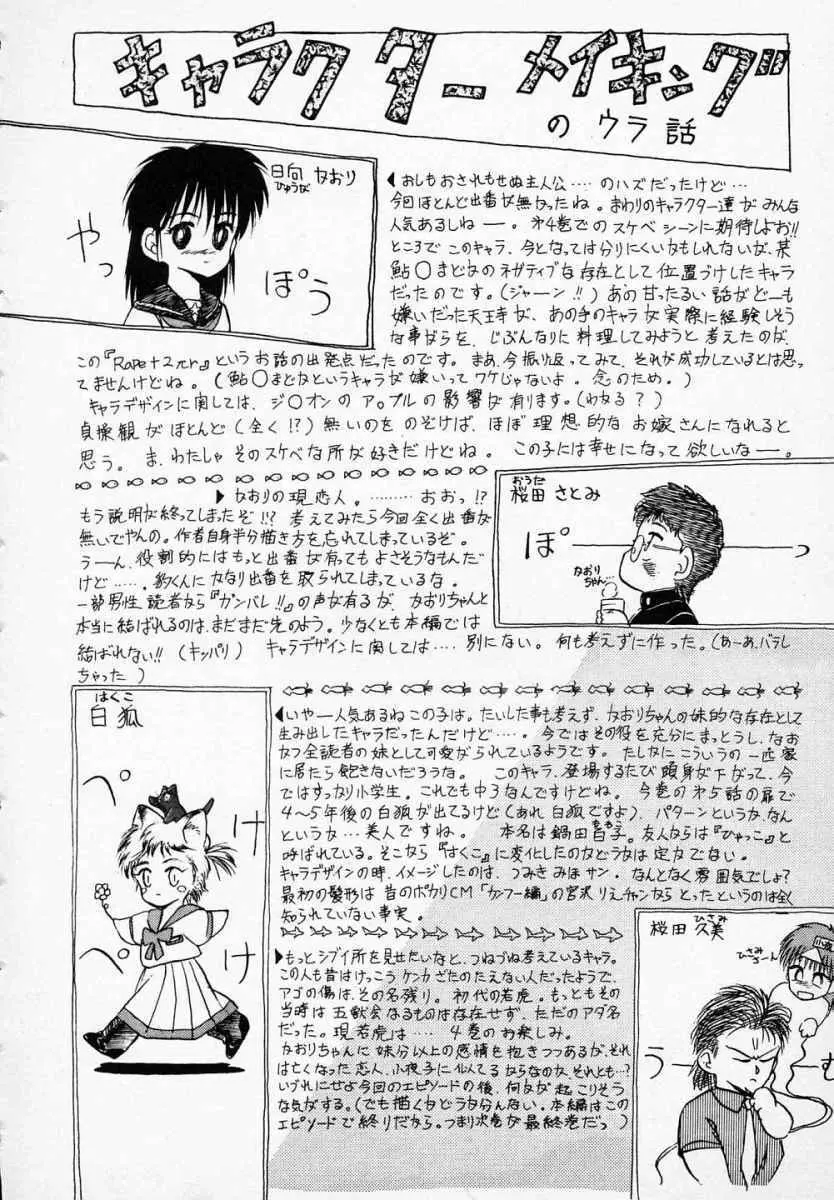 キャラクターメイキング
のウラ話
日向 かおり
ひゅうが
やっ
ぽう
◀おしもおされもせぬ主人公‥‥のハズだったけど…
今回ほとんど出番が無かったね。まわりのキャラクター達がみんな
人気あるしねー。オ4巻でのスケベシーンに期待しよお!!
ところでこのキャラ、今となっては分りにくいかもしれないが、某
鮎〇まどかのネガティブな存在として位置づけしたキャラ
だったのです。(ジャーン!!)あの甘ったるい話がどーも
嫌いだった天王寺が、あの手のキャラが実際に経験しそう
な事がらを、じぶんなりに料理してみようと考えたのが、
この『Rape+2πr』というお話の出発点だったのです。まあ、今振り返ってみて、それが成功しているとは思っ
てませんけどね。(鮎〇まどかというキャラが嫌いってワケじゃないよ。念のため。)
キャラデザインに関しては、ジ〇オンのア〇プルの影響が有ります。(わかる?)
貞操観がほとんど(全く!?)無いのをのぞけば、ほぼ理想的なお嫁さんになれると
思う。ま、わたしゃそのスケベな所が好きだけどね。この子には幸せになって欲しいなー。
おうた
桜田 さとみ
ぽー
かおり
ちゃん…
▶かおりの現恋人。………おおっ!?
もう説明が終ってしまったぞ!!? 考えてみたら今回全く出番が
無いでやんの。作者自身半分描き方を忘れてしまっているぞ。
うーん、役割的にはもっと出番が有ってもよさそうなもんだ
けど……、豹くんにかなり出番を取られてしまっているな。
一部男性読者から『ガンバレ!!』の声が有るが、かおりちゃんと
本当に結ばれるのは、まだまだ先のよう。少なくとも本編では
結ばれない!!(キッパリ) キャラデザインに関しては‥‥別にない。何も考えずに作った。(あーあ、バラし
ちゃった)
はくこ
白狐
ぺ
け
ぺ
け
◀いやー人気あるねこの子は。たいした事も考えず、かおりちゃんの妹的な存在として
生み出したキャラだったんだけど‥‥。今ではその役を充分にまっとうし、なお
かつ全読者の妹として可愛がられているようです。たしかにこういうの一匹家
に居たら飽きないだろうな。 このキャラ、登場するたび頭身が下がって、今
ではすっかり小学生。これでも中3なんですけどね。今巻のオ5話の扉で
4〜5年後の白狐が出てるけど(あれ白狐ですよ)、パターンというか、なん
というか…美人ですね。 本名は鍋田百子。友人からは『ひゃっこ』と
ももこ
呼ばれている。そこから『はくこ』に変化したのかどうかは定かでない。
キャラデザインの時、イメージしたのは、つみきみほサン。なんとなく雰囲気でしょ?
最初の髪形は昔のポカリCM「カンフー編」の宮沢りえチャンからとったというのは全く
知られていない事実。
ひさみ
桜田 久美
ひさみ
ちーん
うー
む
▶もっとシブイ所を見せたいなと、つねづね考えているキャラ。
この人も昔はけっこうケンカざたのたえない人だったようで、
アゴの傷は、その名残り。初代の若虎。もっともその
当時は五獣会なるものは存在せず、ただのアダ名
だった。現若虎は… 4巻のお楽しみ。
かおりちゃんに妹分以上の感情を抱きつつあるが、それ
は亡くなった恋人、小夜子に似てるからなのか、それとも…?
いづれにせよ今回のエピソードの後、何かが起こりそう
な気がする。(でも描くかどうか分んない。本編はこの
エピソードで終りだから。つまり次巻が最終巻だっ)